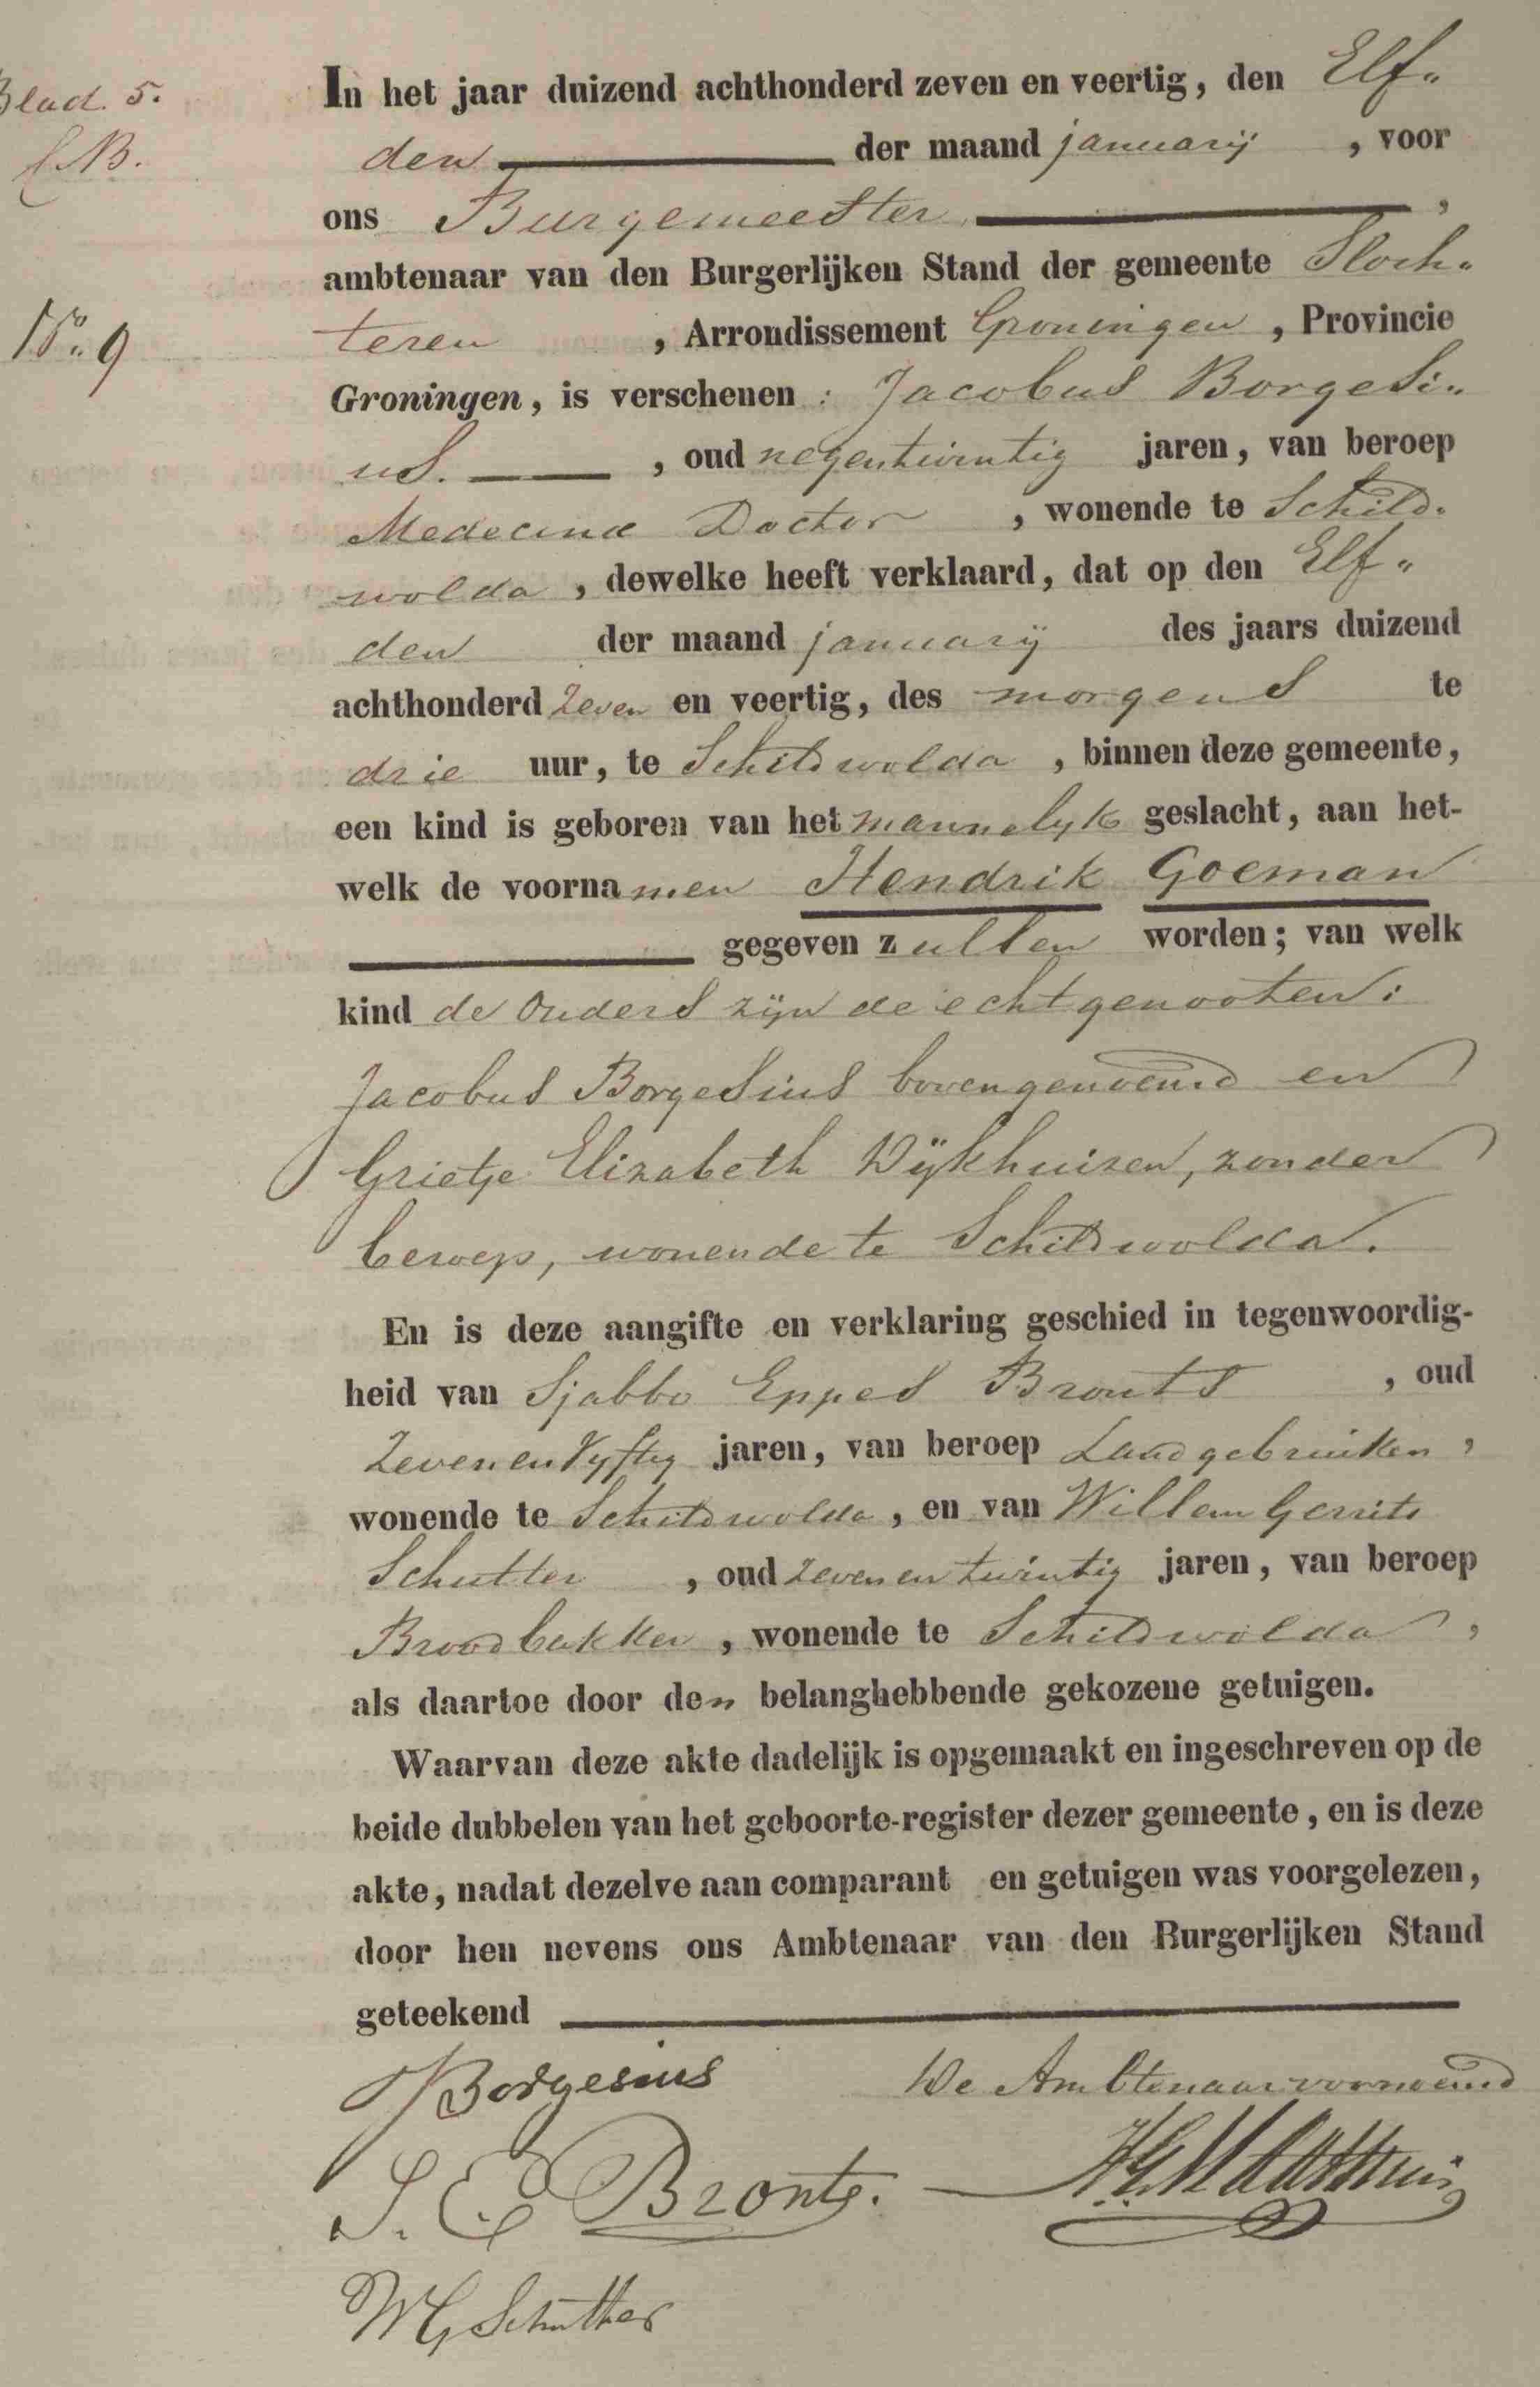 Blad. 5.
In het jaar duizend achthonderd zeven en veertig, den Elf„
den der maand januarij , voor
ons Burgemeester ,
ambtenaar van den Burgerlijken Stand der gemeente Sloch„
No. 9
teren , Arrondissement Groningen , Provincie
Groningen, is verschenen : Jacobus Borgesi„
us. , oud negentwintig jaren, van beroep
Medecina Doctor , wonende te Schild„
wolda , dewelke heeft verklaard, dat op den Elf„
den der maand januarij des jaars duizend
achthonderd Zeven en veertig, des morgens te
drie uur, te Schildwolda , binnen deze gemeente,
een kind is geboren van het mannelyk geslacht, aan het-
welk de voornamen Hendrik Goeman
gegeven zullen worden; van welk
kind de Ouders zijn de echtgenooten:
Jacobus Borgesius bovengenoemd en
Grietje Elizabeth Wijkhuizen, zonder
beroep, wonende te Schildwolda.
En is deze aangifte en verklaring geschied in tegenwoordig-
heid van Sjabbo Eppes Bronts , oud
Zevenenvyftig jaren, van beroep Landgebruiker ,
wonende te Schildwolda , en van Willem Gerrits
Schutter , oud zevenentwintig jaren, van beroep
Broodbakker , wonende te Schildwolda ,
als daartoe door den belanghebbende gekozene getuigen.
Waarvan deze akte dadelijk is opgemaakt en ingeschreven op de
beide dubbelen van het geboorte-register dezer gemeente, en is deze
akte, nadat dezelve aan comparant en getuigen was voorgelezen,
door hen nevens ons Ambtenaar van den Burgerlijken Stand
geteekend
J Borgesius De Ambtenaar voornoemd
S. E. Bronts.
WG Schutter